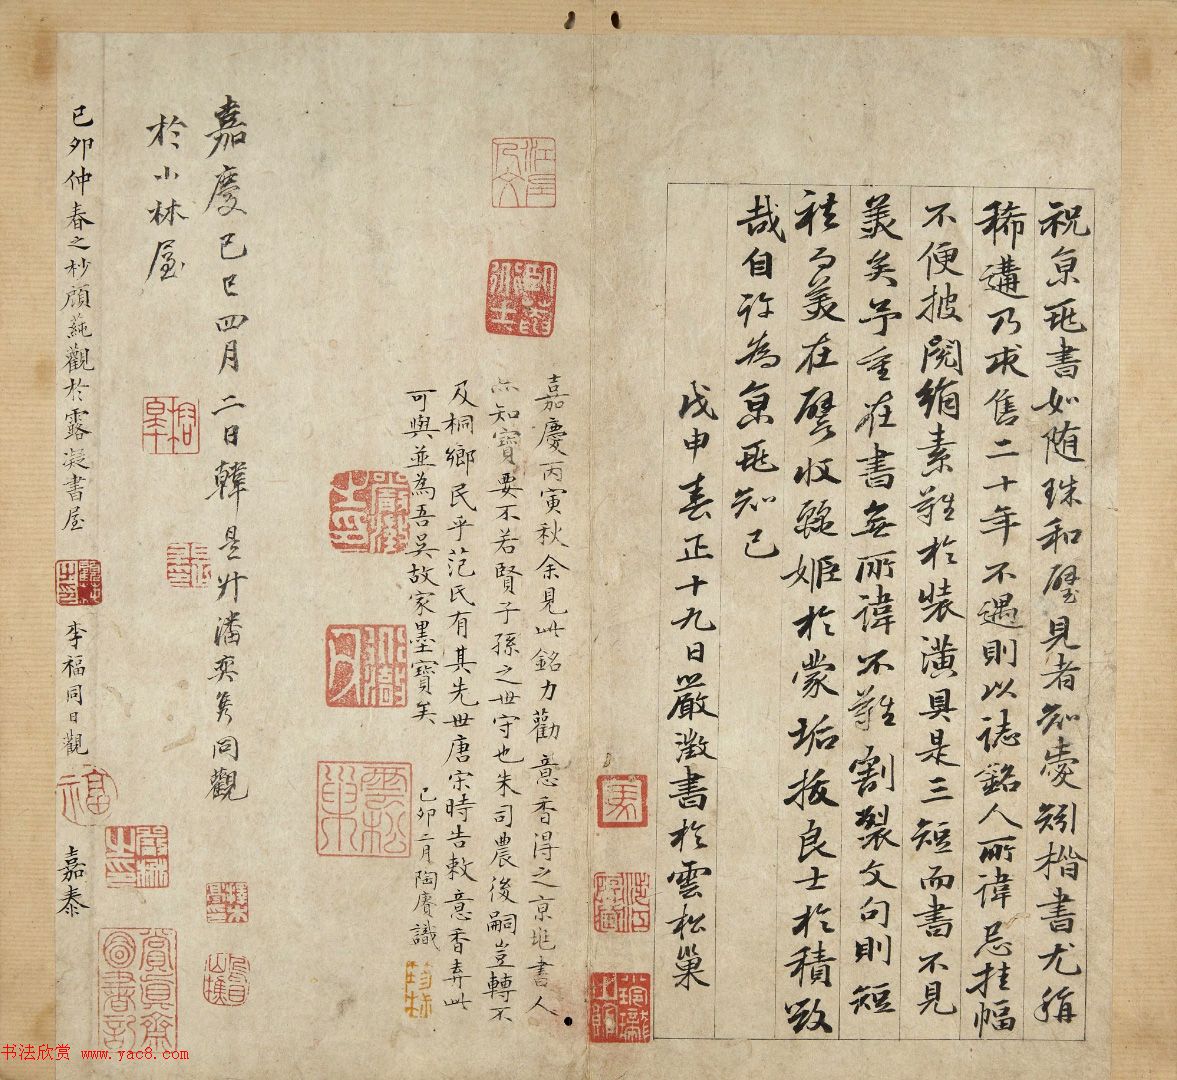 祝京兆書如随珠和璧見者知愛矧楷書尤稱
稀遘乃求售二十年不遇則以誌銘人所諱忌挂幅
不便披閱絹素難於裝潢具是三短而書不見
美矣予重在書無所諱不難割裂文句則短
祛而美在譬收驪姬於蒙垢拔良士於積毀
哉自許為京兆知己
戊申春正十九日嚴澂書於雲松巢
嘉慶丙寅秋余見此銘力勸意香得之京兆書人
亦知寶要不若賢子孫之世守也朱司農後嗣豈轉不
及桐鄉民乎范氏有其先世唐宋時告敕意香弆此
可與並為吾吳故家墨寶矣 己卯二月陶賡識
雲松巢
嚴澂之印
嘉慶己巳四月二日韓是升潘奕雋同觀
於小林屋
己卯仲春之杪顧蒓觀於露凝書屋
李福同日觀
嘉泰
賞真齋圖書記
书法欣赏 www.yac8.com